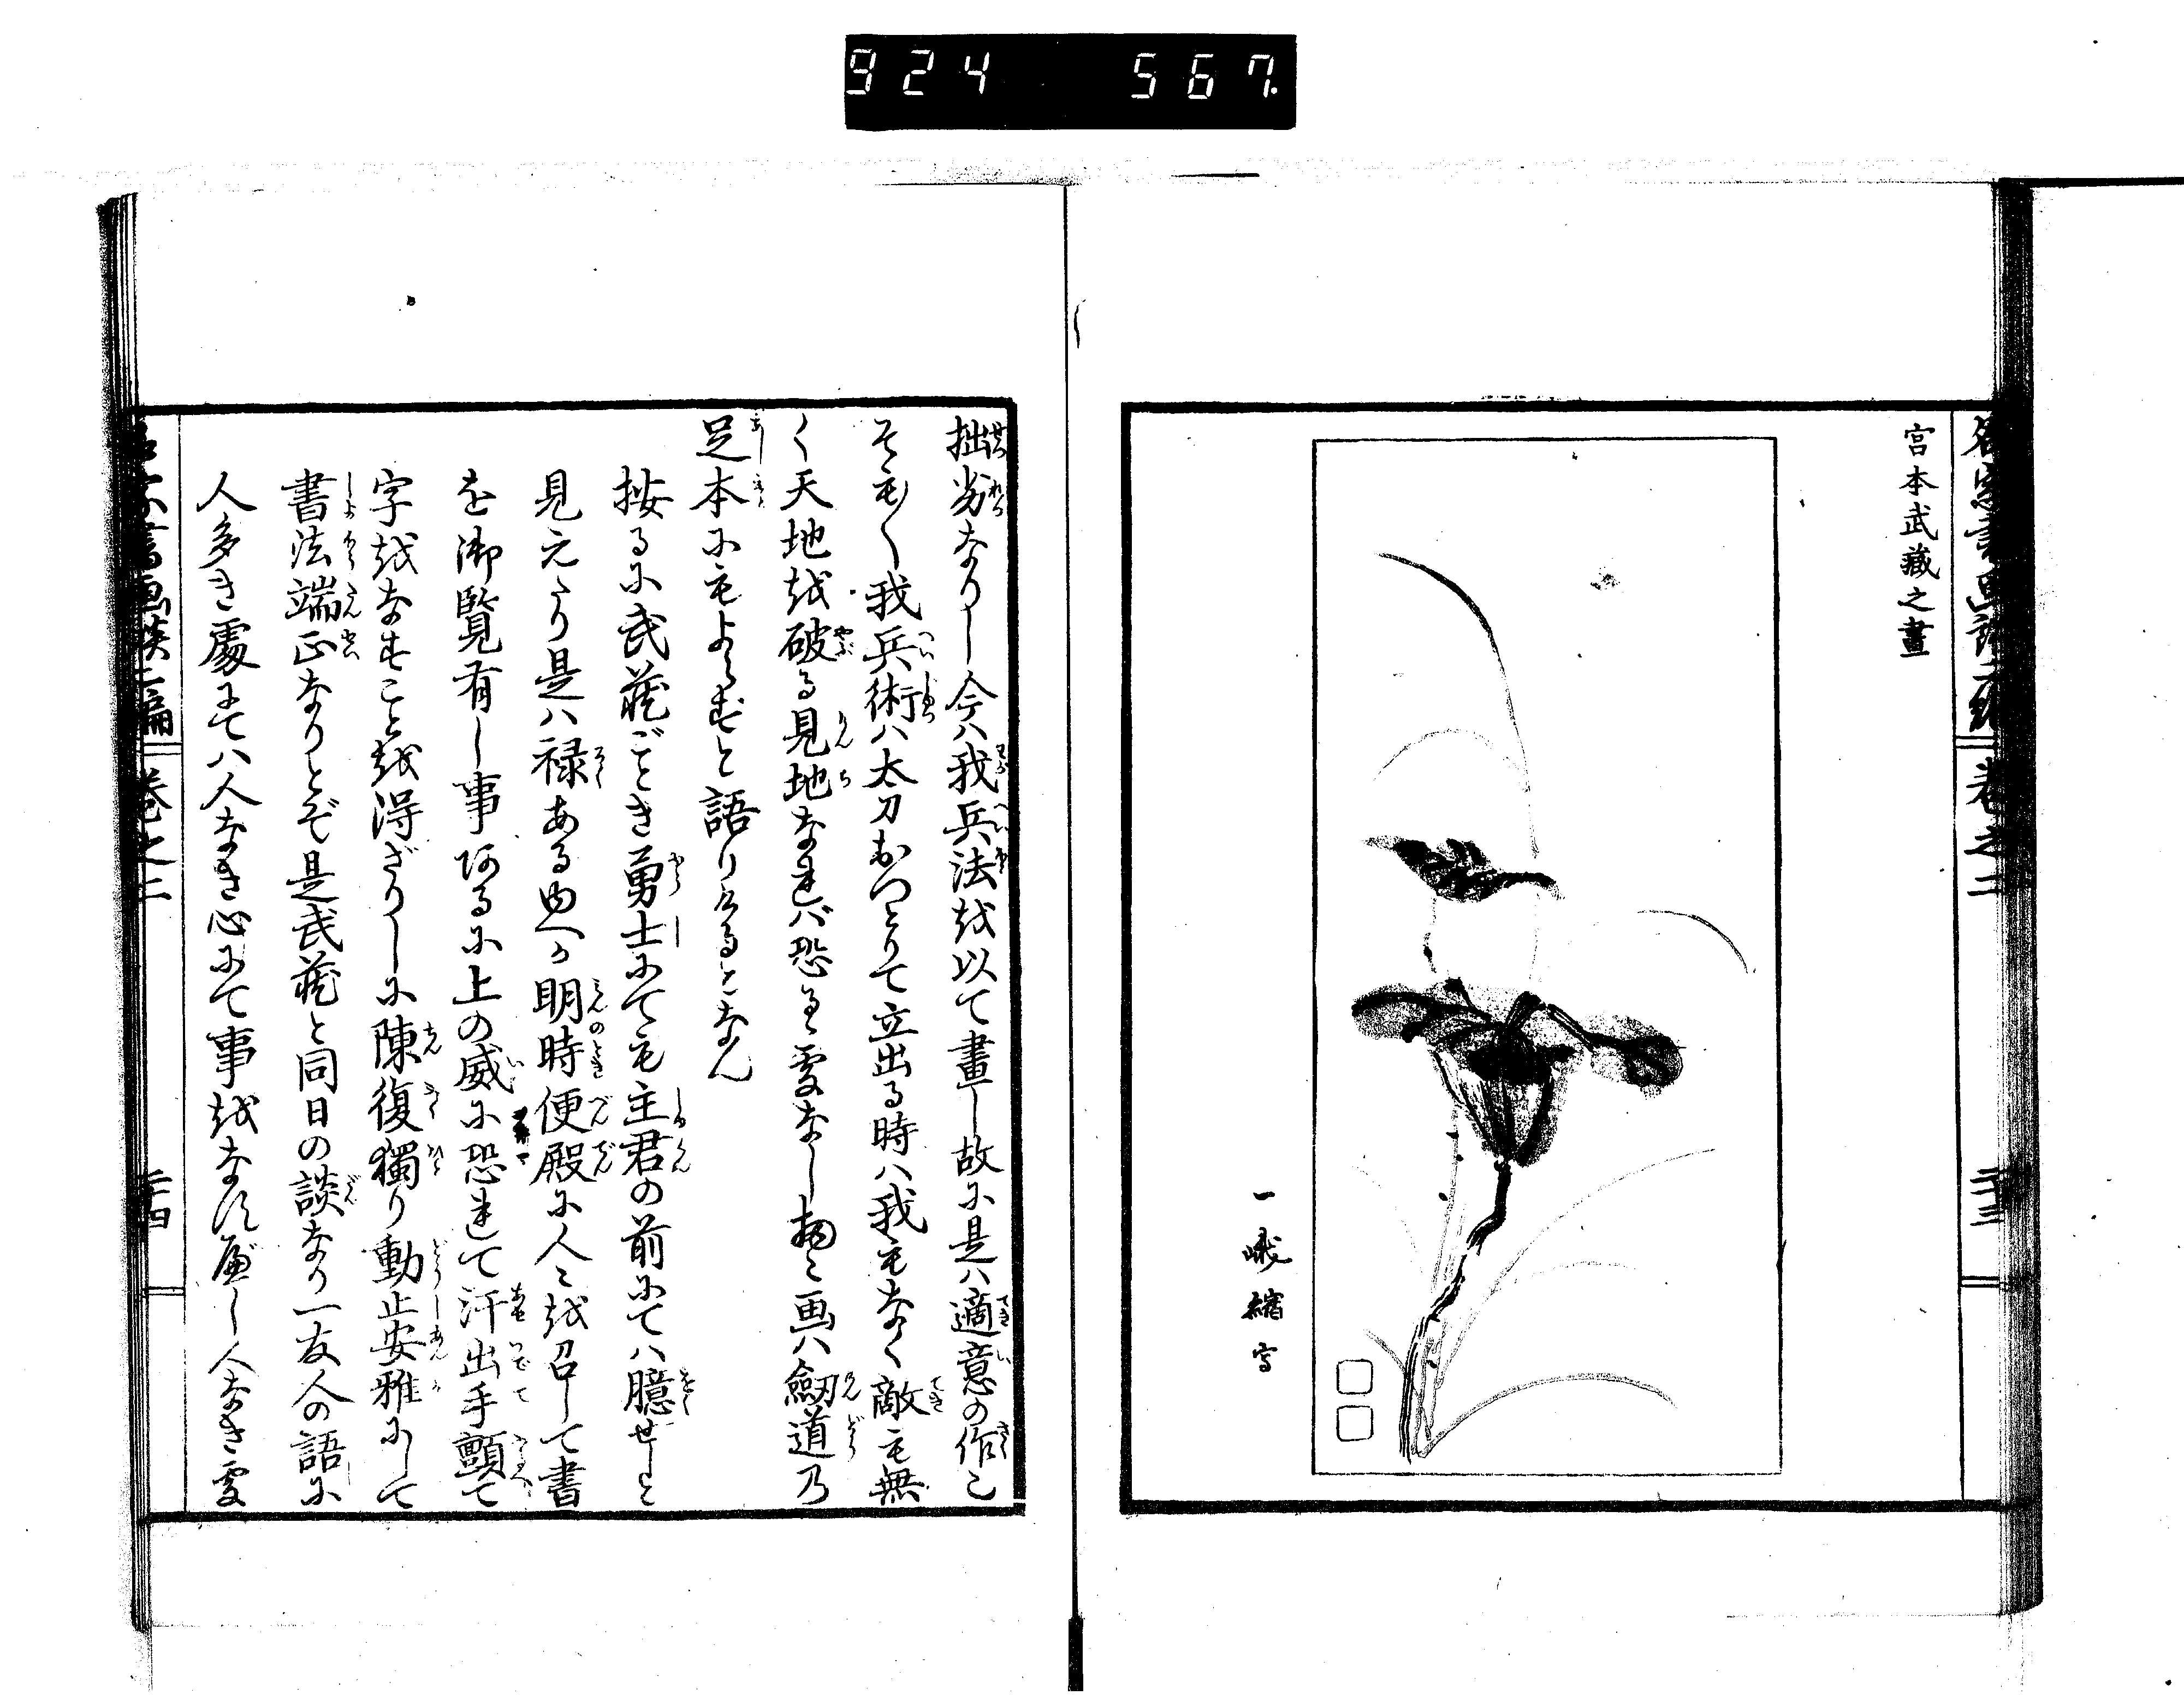 924 567.
名家書画談二編 卷之二 二十三
宮本武藏之畫
一峨縮写
拙劣なりし今ハ我兵法を以て畫し故に是ハ適意の作也
そも〳〵我兵術ハ太刀おつとりて立出る時ハ我もなく敵も無
く天地を破る見地なれバ恐るゝ事なし畫ハ劔道乃
足本にもよらずと語りけるとなん
按るに武蔵ごとき勇士にても主君の前にてハ臆せしと
見えたり是ハ禄あるゆへか明時便殿に人を召して書
を御覧有し事阿るに上の威に恐れて汗出手顫て
字をなすこと越得ざりしに陳復獨り動止安雅にして
書法端正なりとぞ是武蔵と同日の談なり一友人の語に
人多き處にてハ人なき心にて事をなすべし人なき处
名家書画談二編 卷之二 二十四